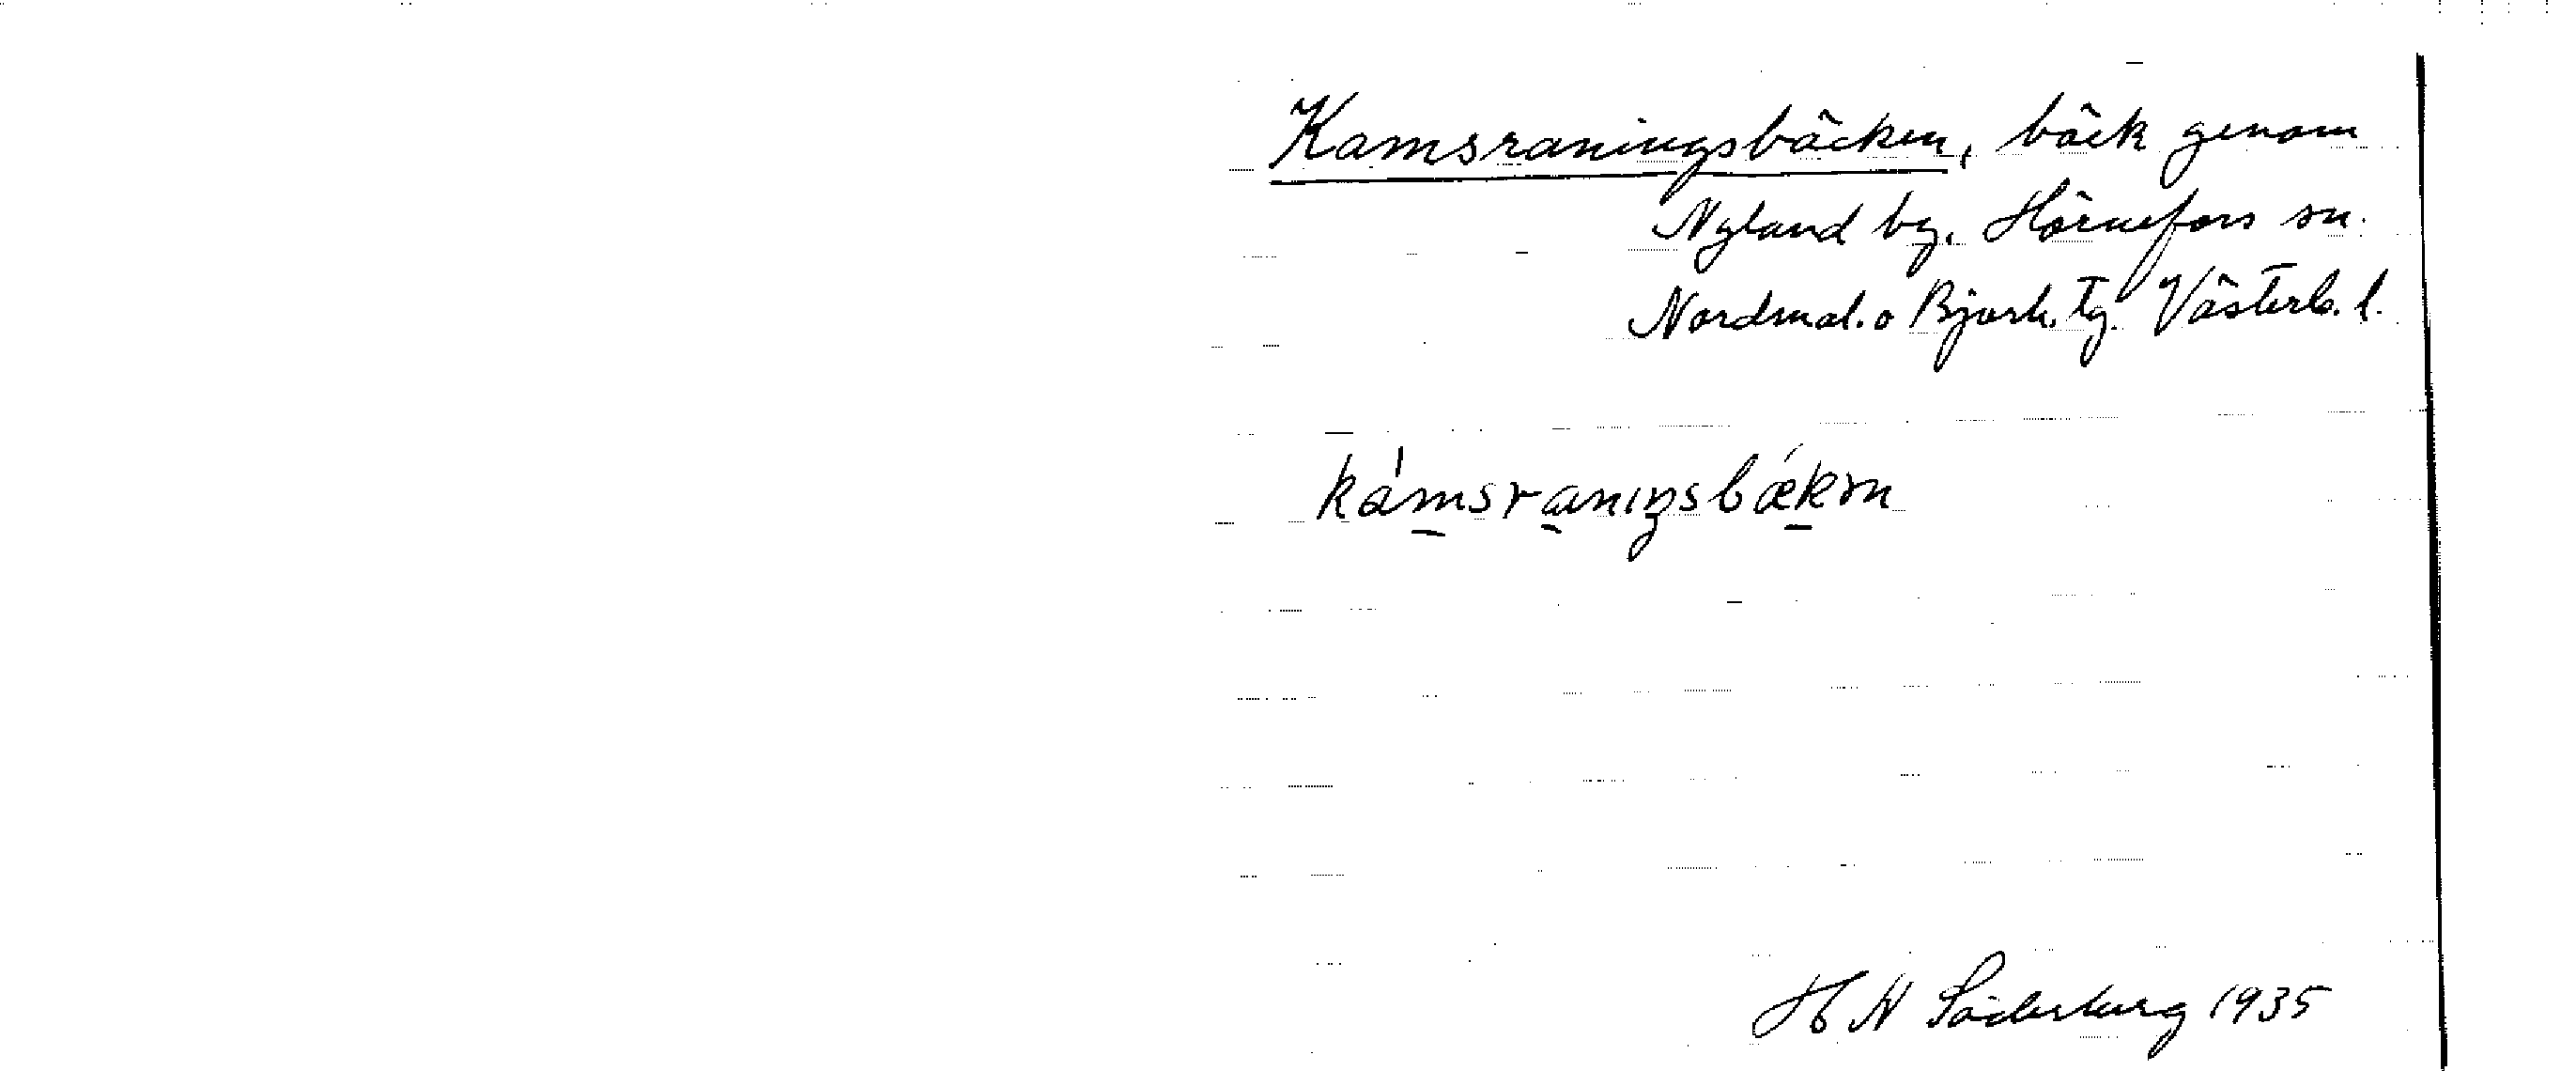 Kamsraningsbäcken, bäck genom
Nyland by. Hörnefors sn.
Nordmal. o Bjurh. tg. Västerb. l.
kámsraniŋsbǽkɐn
H N Söderberg 1935